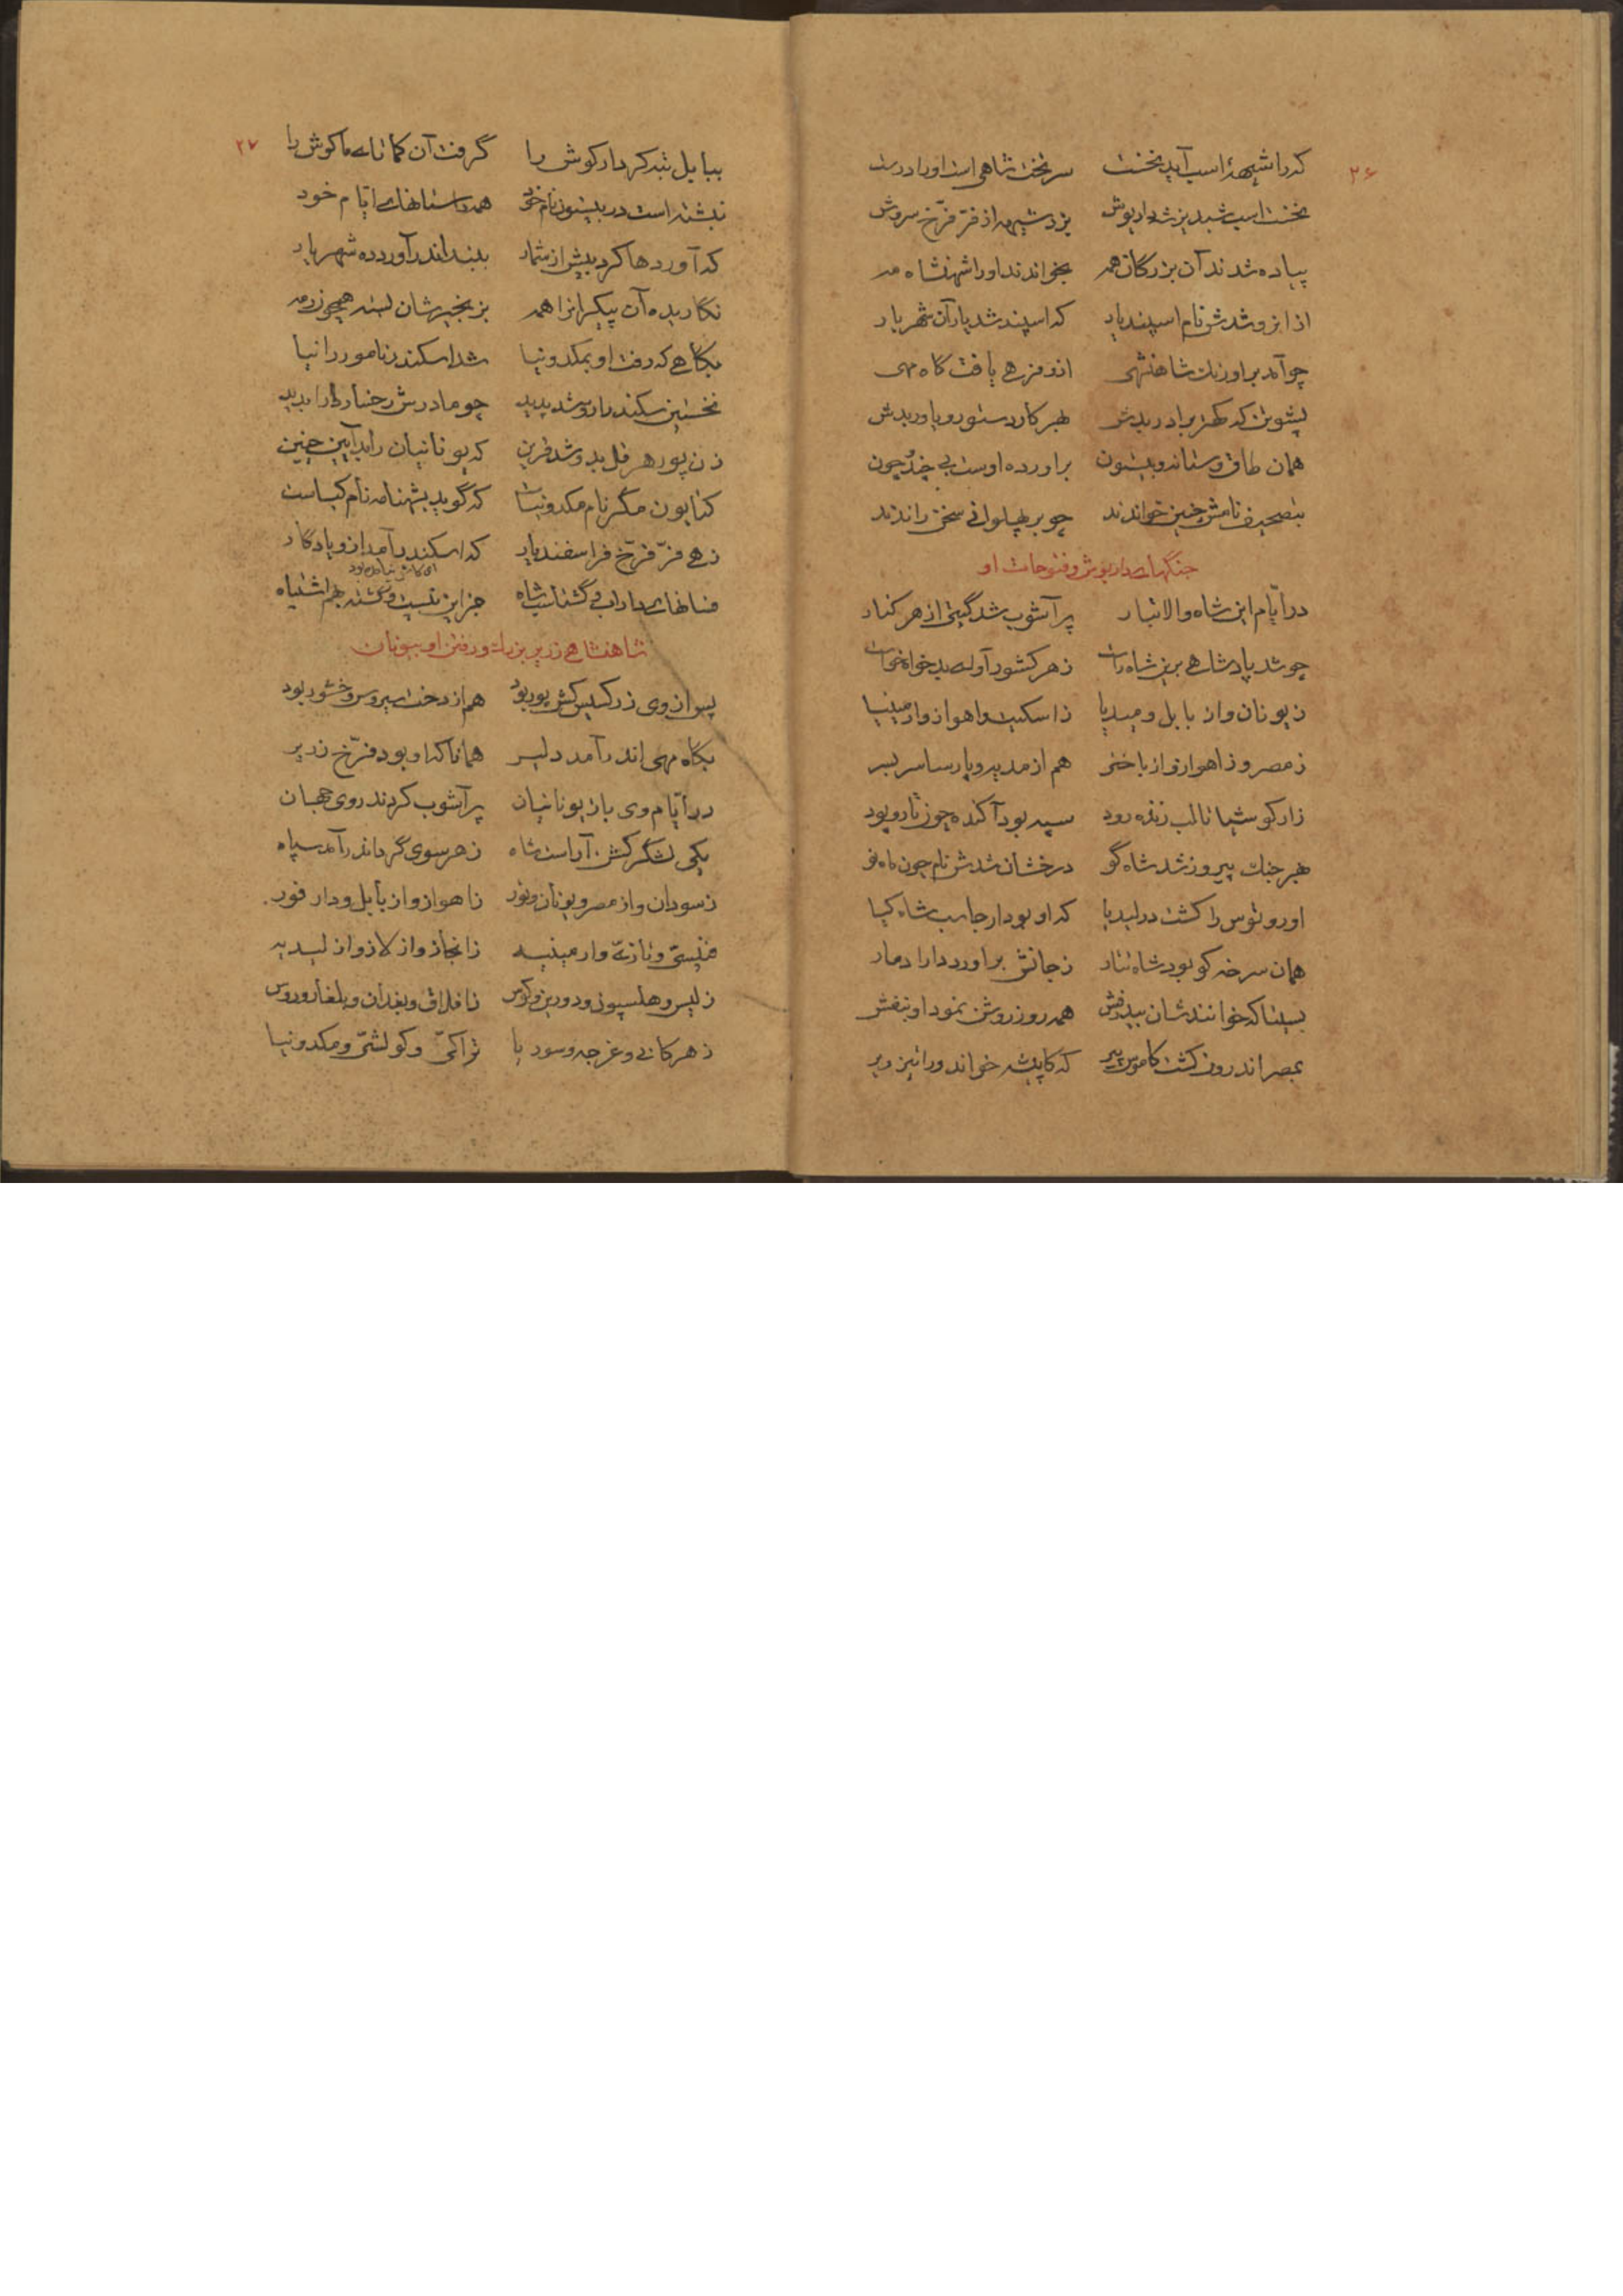 ۲۶
که را شیههٔ اسب آید نخست سر تخت شاهی است او را درست
نخست اسب شبدیز شد داریوش بزد شیهه از فرّ فرّخ سروش
پیاده شدند آن بزرگان همه بخواندند او را شهنشاه مه
از این رو شدش نام اسپندیار که اسپند شد یار آن شهریار
چو آمد بر اورنگ شاهنشهی از او فرّهی یافت گاه مهی
پشوتن که کهتر برادر بدش بهر کار دستور و یاور بدش
همان طاق وستان و بیستون برآورده اوست بی چند و چون
بتصحیف نامش چنین خواندند چو بر پهلوانی سخن راندند
جنگهای داریوش و فتوحات او
در ایّام این شاه والاتبار پرآشوب شد گیتی از هر کنار
چو شد پادشاهی بر این شاه راست ز هر کشور آوای بدخواه خاست
ز یونان و از بابل و میدیا ز اسکیت و اهواز و ارمینیا
ز مصر و ز اهواز و از باختر هم از مدیه و پارسا سربسر
ز ارکوشیا تا لب زنده رود سپه بود آکنده چون تار و پود
بهر جنگ پیروز شد شاه گو درخشان شدش نام چون ماه نو
اوروتوس را کشت در لیدیا که او بود ارجاسب شاه کیا
همان سرخه کو بود شاه تتار ز جانش برآورد دارا دمار
بسیتا که خوانندشان بیدرفش همه روز روشن نمود او بنفش
بمصر اندرون کشت کاموس پیر که کاپیشه خواند ورا نیز ویر
۲۷
ببابل تبه کرد ارکوش را گرفت آن کماتای ماکوش را
نبشته است در بیستون نام خود همه داستانهای ایّام خود
که آوردها کرد بیش از شمار ببند اندر آورده شهریار
نگاریده آن پیکران را همه بزنجیرشان بسته همچون رمه
بگاهی که رفت او بمکدونیا شد اسکندر نامور را نیا
نخستین سکندر از او شد پدید چو مادرش رخسار دارا بدید
زن پور هرقل بد و شد قرین که یونانیان را بد آیین چنین
کتایون مگر نام مکدونیاست که گوید بشهنامه نام کیاست
زهی فرّ فرّخ فر اسفندیار که اسکندر آمد از او یادگار
فسانهای داراب و گشتاسب شاه جز این نیست و گشته بهم اشتباه
شاهنشاهی زریر بزرگ و رفتن او بیونان
پس از وی زرکسیس کش پور بود هم از دخت سیروس وخشور بود
بگاه مهی اندر آمد دلیر همانا که او بود فرّخ زریر
در ایّام وی باز یونانیان پرآشوب کردند روی جهان
یکی لشگر گشن آراست شاه ز هر سوی گرد اندر آمد سپاه
ز سودان و از مصر و یونان و تور ز اهواز و از بابل و دارفور
فنیسیّ و تازیّ و ارمینیه ز انجاز و از لاز و از لیدیه
ز لیس و هلسپون و دورین و کوس ز افلاق و بغدان و بلغار و روس
ز هرکانی و غرجه و سوریا تراکیّ و کولشیّ و مکدونیا